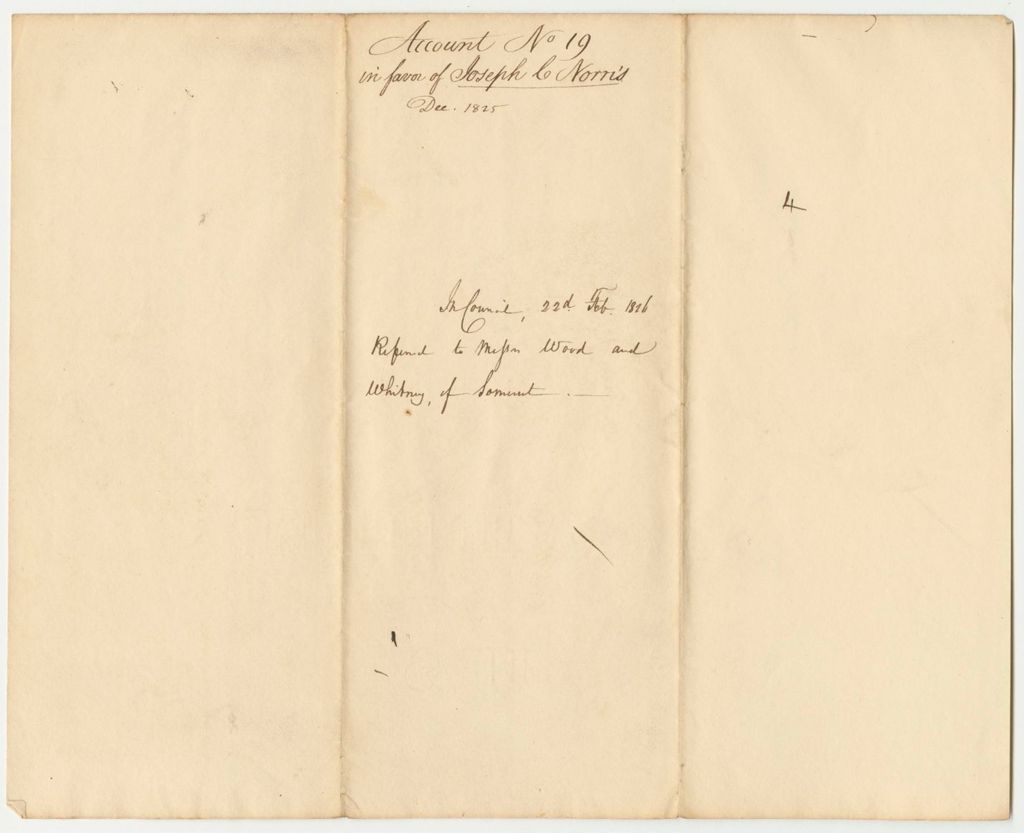 Account No 19
in favor of Joseph C Norris
Dec. 1825
4
In Council, 22d Feb. 1826
Referred to Messrs Wood and
Whitney, of Somerset. —